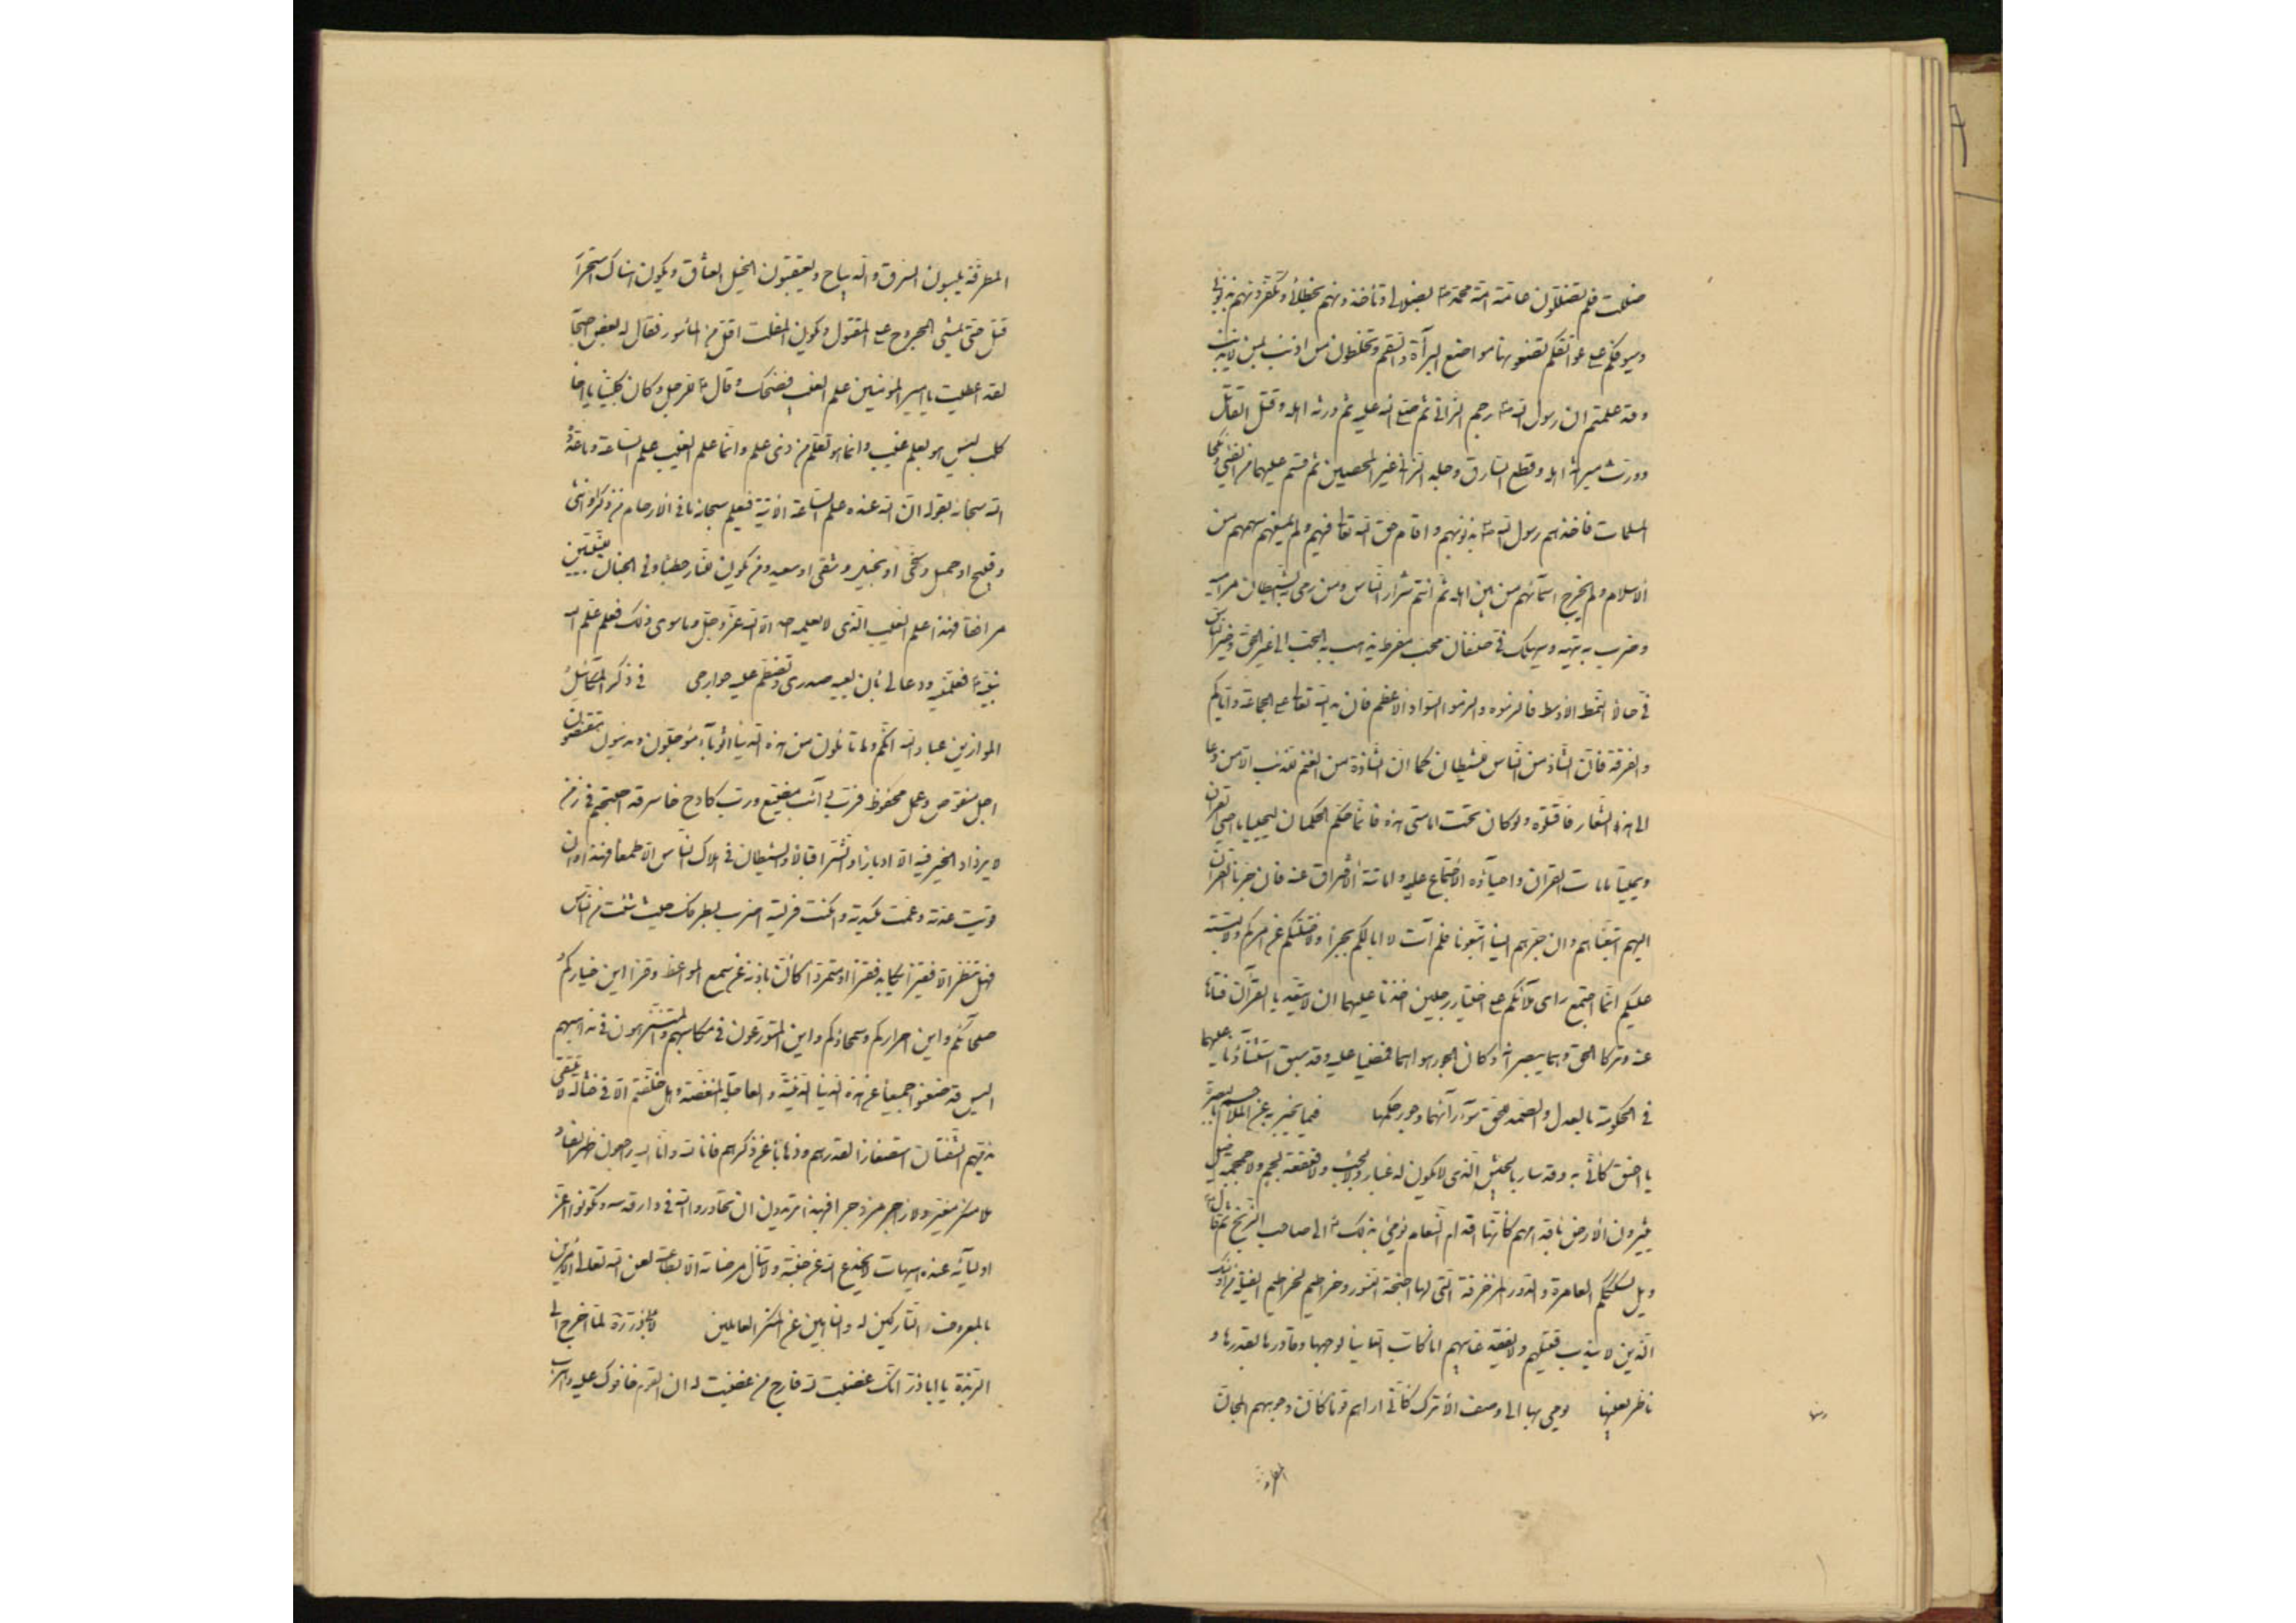 ضللت فلم تضللون عامة امة محمد ص بضلالی و تأخذونهم بخطائی و تکفرونهم بذنوبی
وسیوفکم علی عواتقکم تضعونها مواضع البرآءة والسقم وتخلطون من اذنب بمن لا یذنب
وقد علمتم ان رسول الله ص رجم الزانی ثم صلی الله علیه ثم ورثه اهله وقتل القاتل
وورث میراثه اهله وقطع السارق وجلد الزانی غیر المحصین ثم قسم علیهما من الفیئ ونکحا
المسلمات فاخذهم رسول الله ص بذنوبهم واقام حق الله تعالی فیهم ولم یمنعهم سهمهم من
الاسلام ولم یخرج اسمآئهم من بین اهله ثم انتم شرار الناس ومن رمی به الشیطان مرامیه
وضرب به تیهه وسیهلک فی صنفان محب مفرط یذهب به الحب الی غیر الحق وخیر الناس
فی حالا النمط الاوسط فالزموه والزموا السواد الاعظم فان ید الله تعالی علی الجماعة وایاکم
والفرقة فان الشاذ من الناس للشیطان کما ان الشاذة من الغنم للذئب الا من دعا
الی هذا الشعار فاقتلوه ولو کان تحت عمامتی هذه فانما حکم الحکمان لیحییا ما احیی القرآن
ویمیتا ما امات القرآن واحیآؤه الاجتماع علیه واماتته الافتراق عنه فان جرنا القرآن
الیهم اتبعناهم وان جرهم الینا اتبعونا فلم آت لا ابا لکم بجرا ولا ختلتکم عن امرکم ولا لبسته
علیکم انما اجتمع رای ملائکم علی اختیار رجلین اخذنا علیهما ان لا یتعدیا القرآن فتاها
عنه وترکا الحق وهما یبصرانه وکان الجور هواهما فمضیا علیه وقد سبق استثناؤنا علیهما
فی الحکومة بالعدل والصمد للحق سوء رأیهما وجور حکمهما فیما یخبر به عن الملاحم بالبصرة
یا احنف کانی به وقد سار بالجیش الذی لا یکون له غبار ولا لجب ولا قعقعة لجم ولا حمحمة خیل
یثیرون الارض باقدامهم کانها اقدام النعام یومئ بذلک ع الی صاحب الزنج ثم قال ع
ویل لسکککم العامرة والدور المزخرفة التی لها اجنحة کاجنحة النسور وخراطیم کخراطیم الفیلة من اولئک
الذین لا یندب قتیلهم ولا یفقد غائبهم انا کاب الدنیا لوجهها وقادرها بقدرها و
ناظرها بعینها یومی بها الی وصف الاتراک کانی اراهم قوما کان وجوههم المجان
المطرقة یلبسون السرق والدیباج ویعتقبون الخیل العتاق ویکون هناک استحرار
قتل حتی یمشی المجروح علی المقتول ویکون المفلت اقل من المأسور فقال له بعض اصحابه
لقد اعطیت یا امیر المؤمنین علم الغیب فضحک وقال ع للرجل وکان کلبیا یا اخا
کلب لیس هو بعلم غیب وانما هو تعلم من ذی علم وانما علم الغیب علم الساعة وما عدده
الله سبحانه بقوله ان الله عنده علم الساعة الآیة فیعلم سبحانه ما فی الارحام من ذکر او انثی
وقبیح او جمیل وسخی او بخیل وشقی او سعید ومن یکون للنار حطبا او فی الجنان للنبیین
مرافقا فهذا علم الغیب الذی لا یعلمه احد الا الله عز وجل وما سوی ذلک فعلم علمه الله
نبیه ص فعلمنیه ودعا لی بان یعیه صدری وتضطم علیه جوارحی فی ذکر المکائیل
الموازین عباد الله انکم وما تأملون من هذه الدنیا اثویاء مؤجلون ومدینون مقتضون
اجل منقوص وعمل محفوظ فرب دائب مضیع ورب کادح خاسر قد اصبحتم فی زمن
لا یزداد الخیر فیه الا ادبارا والشر اقبالا والشیطان فی هلاک الناس الا طمعا فهذا اوان
قویت عدته وعمت مکیدته وامکنت فریسته اضرب بطرفک حیث شئت من الناس
فهل تنظر الا فقیرا یکابد فقرا او متمردا کان باذنه عن سمع المواعظ وقرا این خیارکم و
صلحآئکم واین احرارکم وسمحاؤکم واین المتورعون فی مکاسبهم والمتنزهون فی مذاهبهم
الیس قد ظعنوا جمیعا عن هذه الدنیا الدنیة والعاجلة المنغصة وهل خلفتم الا فی حثالة لا تلتقی
بذمهم الشفتان استصغارا لقدرهم وذهابا عن ذکرهم فانا لله وانا الیه راجعون ظهر الفساد
فلا منکر مغیر ولا زاجر مزدجر افبهذا تریدون ان تجاوروا الله فی دار قدسه وتکونوا اعز
اولیآئه عنده هیهات لا یخدع الله عن جنته ولا تنال مرضاته الا بطاعته لعن الله تعالی الآمرین
بالمعروف التارکین له والناهین عن المنکر العاملین لابی ذر رة لما اخرج الی
الربذة یا ابا ذر انک غضبت لله فارج من غضبت له ان القوم خافوک علی دنیاهم
المطرقة